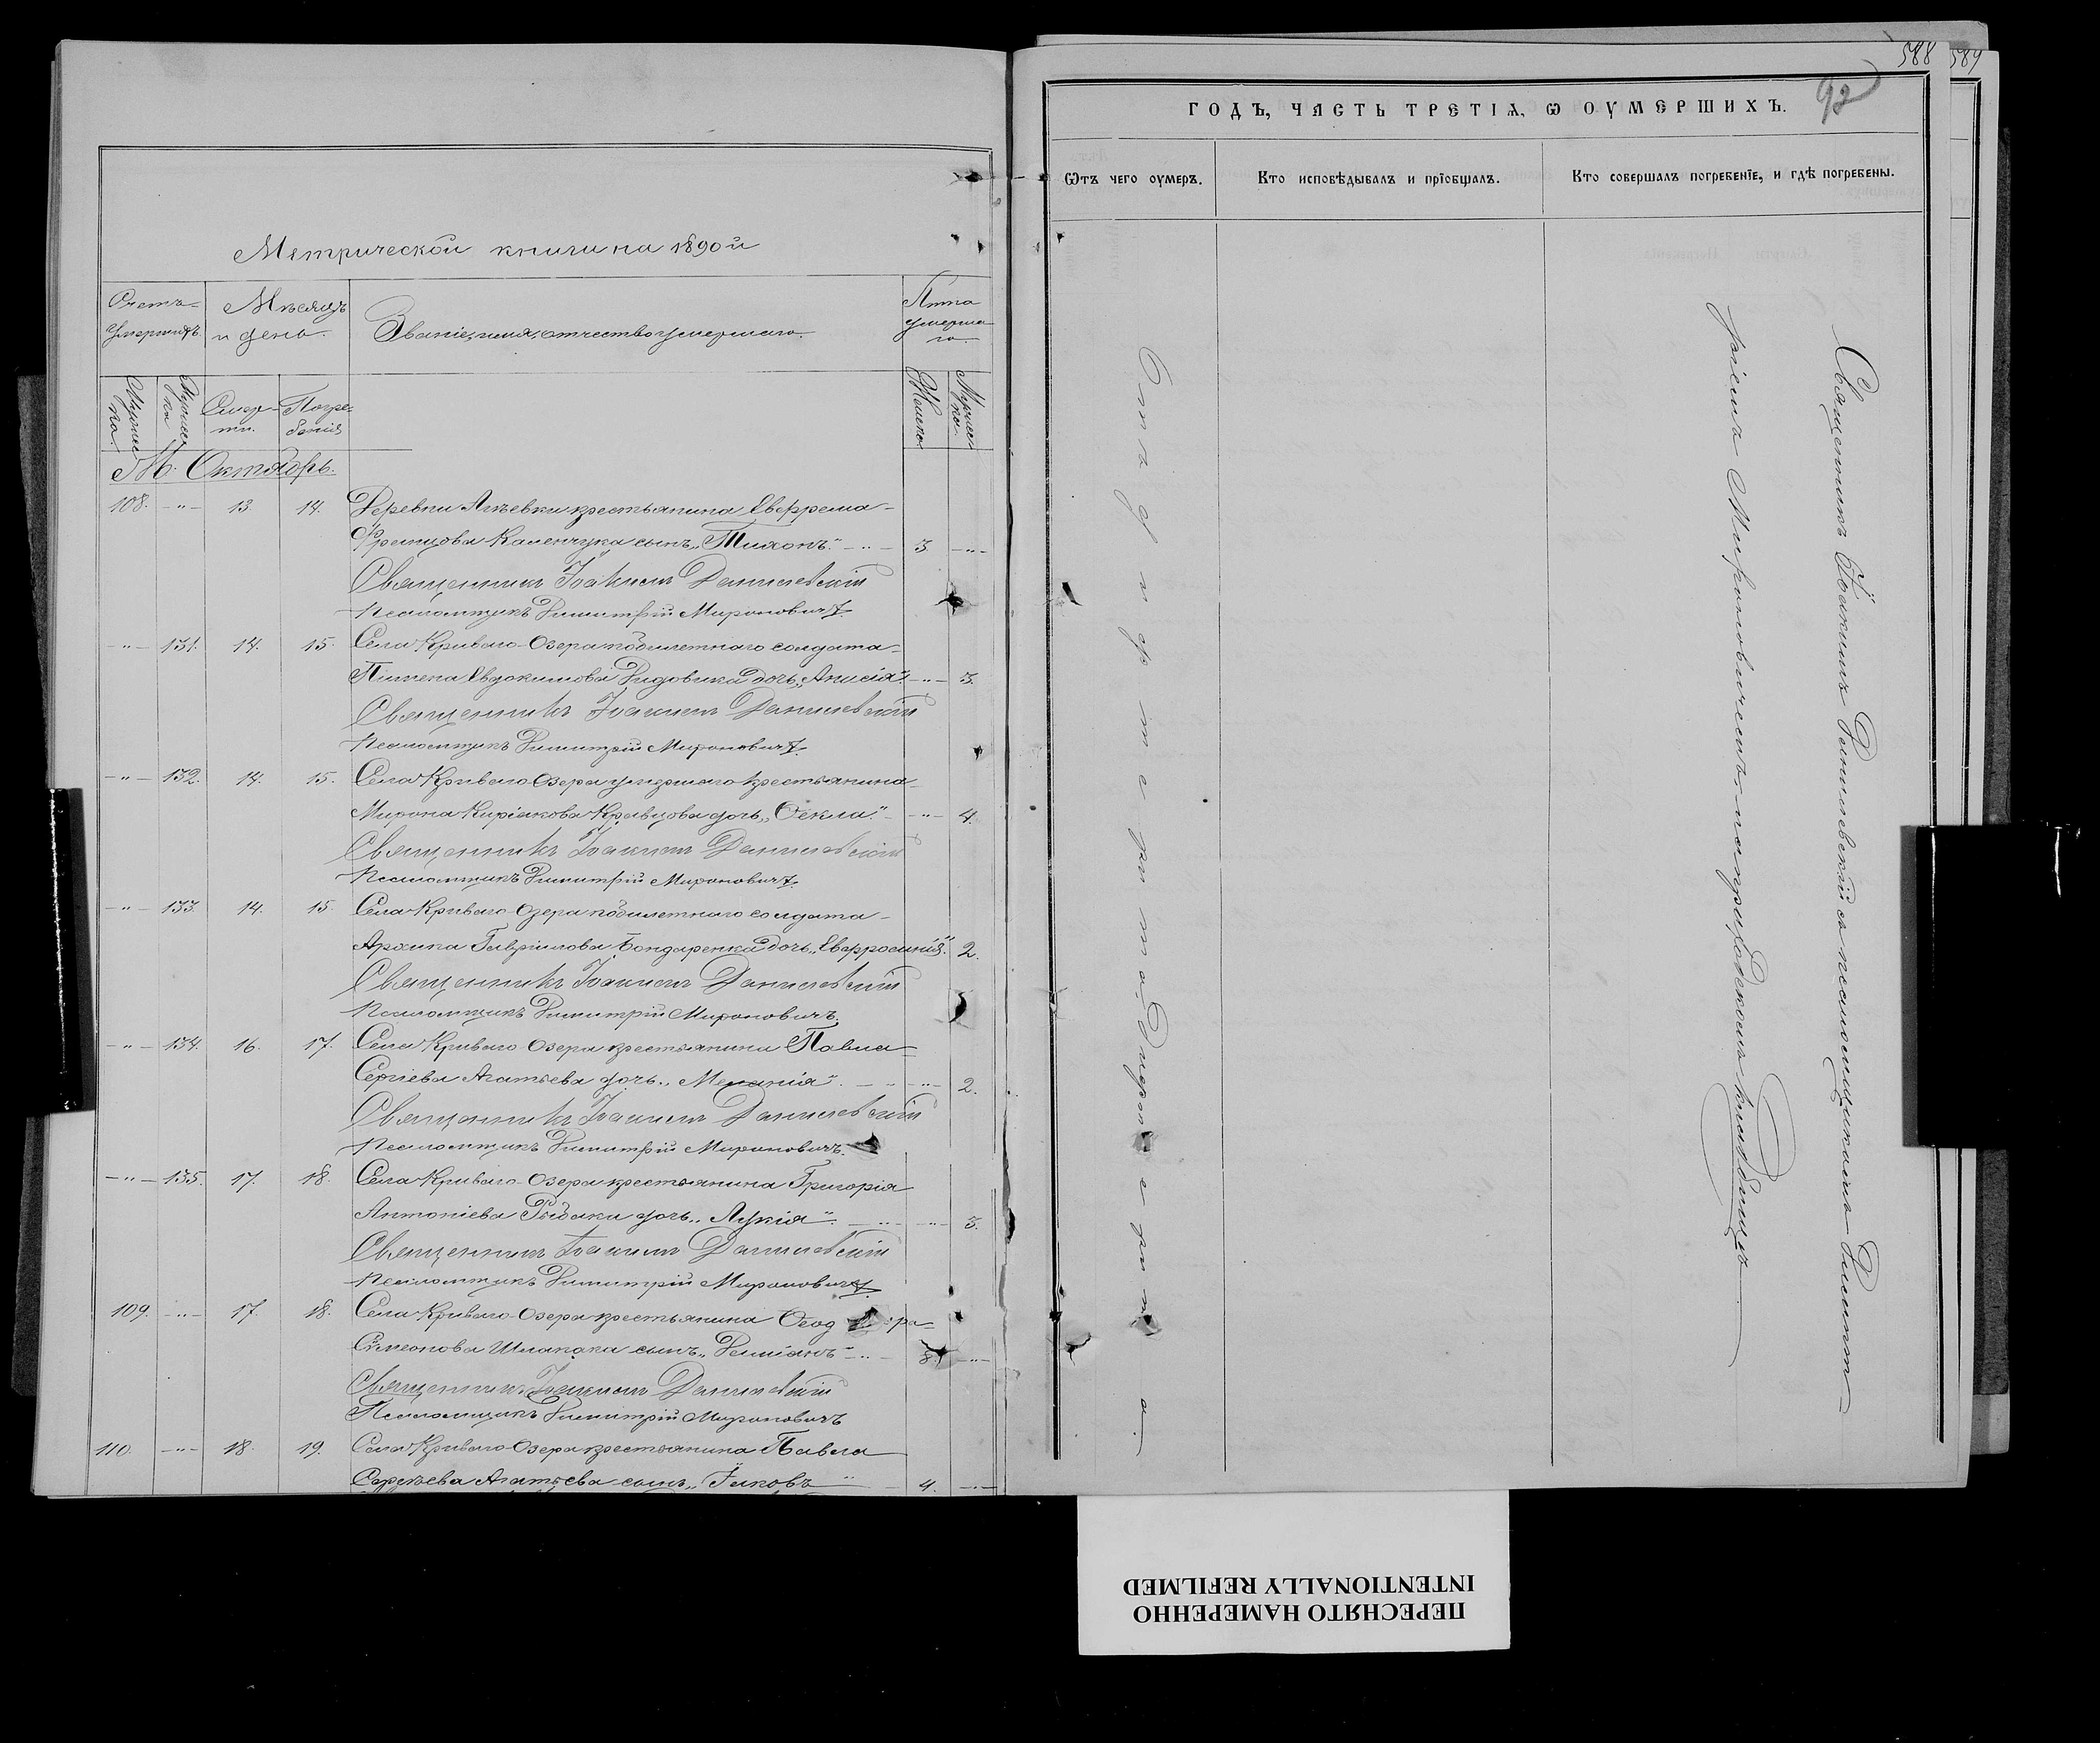 Метрической книги на 1890й
Счетъ умершихъ.
Мѣсяцъ и день.
Званіе, имя, отчество умершаго.
Лѣта умершаго.
Смерти.
Погребенія
М. Октябрь.
108. -"- 13. 14. Деревни крестьянина Евфрема
сынъ „Тихонъ" -"- 3 -"-
Священникъ Іоакимъ Данилевскій
Псаломщикъ Димитрій Мироновичъ.
-"- 131. 14. 15. Села Криваго-Озера билетнаго солдата
Пимена Евдокимова дочь „Анисія". -"- 3.
Священникъ Іоакимъ Данилевскій
Псаломщикъ Димитрій Мироновичъ.
-"- 132. 14. 15. Села Криваго-Озера умершаго крестьянина
Мирона Киріякова Кравцова дочь „Ѳекла". -"- 4.
Священникъ Іоакимъ Данилевскій
Псаломщикъ Димитрій Мироновичъ.
-"- 133. 14. 15. Села Криваго-Озера билетнаго солдата
Архипа Гавріилова Бондаренка дочь „Евфросинія". 2.
Священникъ Іоакимъ Данилевскій
Псаломщикъ Димитрій Мироновичъ.
-"- 134. 16. 17. Села Криваго-Озера крестьянина Павла
Сергіева Агатьева дочь „Меланія". -"- 2.
Священникъ Іоакимъ Данилевскій
Псаломщикъ Димитрій Мироновичъ.
-"- 135. 17. 18. Села Криваго-Озера крестьянина Григорія
Антоніева Рыбака дочь „Лукія". -"- 5.
Священникъ Іоакимъ Данилевскій
Псаломщикъ Димитрій Мироновичъ.
109. -"- 17. 18. Села Криваго-Озера крестьянина Ѳеодора
Симеонова сынъ „Даміанъ" -"- 8. -"-
Священникъ Іоакимъ Данилевскій
Псаломщикъ Димитрій Мироновичъ
110. -"- 18. 19. Села Криваго-Озера крестьянина Павла
Сергѣева Агатьева сынъ „Іаковъ" 4. -"-
588 589
92
ГОДЪ, ЧАСТЬ ТРЕТІѦ, Ѡ ОУМЕРШИХЪ.
Ѿтъ чего оумеръ.
Кто исповѣдывалъ и прїобщалъ.
Кто совершалъ погребенїе, и гдѣ погребены.
Отъ дифтерита.
Священникъ Іоакимъ Данилевскій съ псаломщикомъ Димит-
ріемъ Мироновичемъ на приходскомъ кладбищѣ
ПЕРЕСНЯТО НАМЕРЕННО
INTENTIONALLY REFILMED